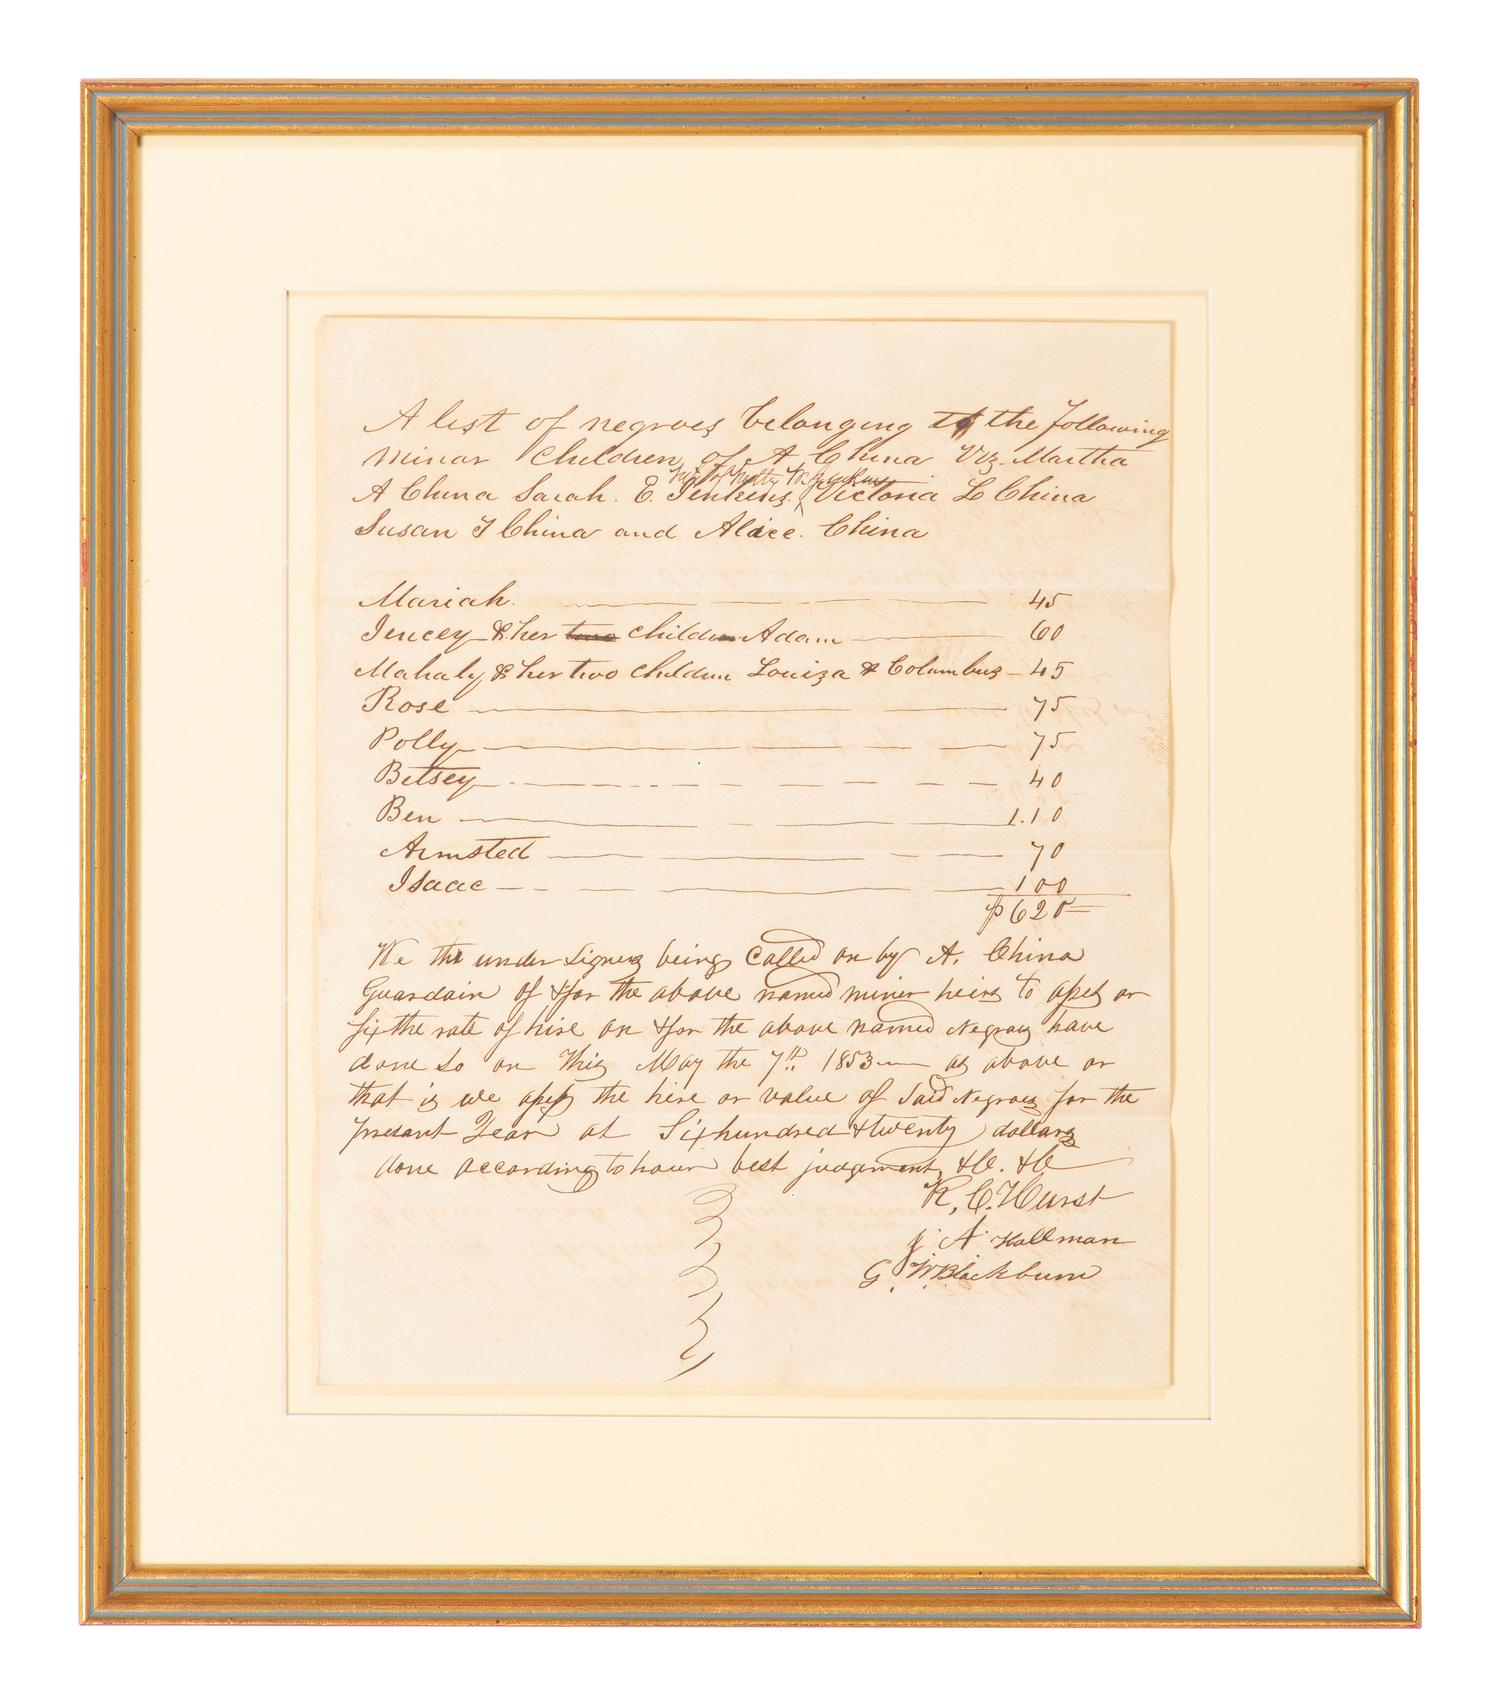 A list of negroes belonging to the following
minor Children of A China Viz. Martha
wife of W. Jenkins
A China Sarah. E. Jenkins. ^ Victoria L China
Susan T China and Alice. China
Mariah. 45
Jencey & her two children Adam 60
Mahaly & her two children Louiza & Columbus 45
Rose 75
Polly 75
Betsey 40
Ben 1.10
Armsted 70
Isaac 100
$620
We the under Signers being Called on by A. China
Guardain of &for the above named miner heirs to assess or
fix the rate of hire on &for the above named Negroes have
done so on This May the 7th 1853 as above or
that is we assess the hire or value of Said Negroes for the
presant Year at Sixhundred &twenty dollars
done according to hour best judgment, &C. &C
R, C. Hurst
J. A. Hallman
G. W. Blackburn